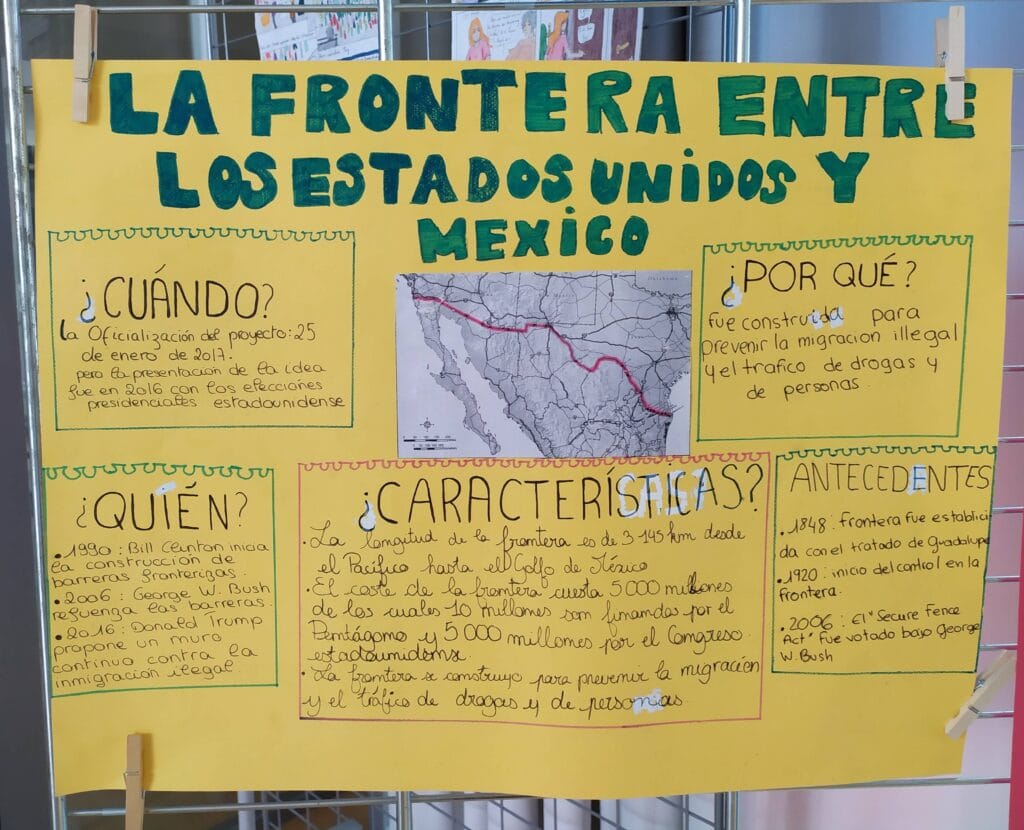 LA FRONTERA ENTRE
LOS ESTADOS UNIDOS Y
MEXICO
¿CUÁNDO?
La Oficialización del proyecto: 25
de enero de 2017.
pero la presentación de la idea
fue en 2016 con los elecciones
presidenciales estadounidense
¿POR QUÉ?
fue construida para
prevenir la migracion illegal
y el trafico de drogas y
de personas.
¿QUIÉN?
• 1990 : Bill Clinton inicia
la construcción de
barreras fronterizas.
• 2006 : George W. Bush
refuenza las barreras.
• 2016 : Donald Trump
propone un muro
continuo contra la
inmigración illegal.
¿CARACTERÍSTICAS?
• La longitud de la frontera es de 3 145 km desde
el Pacífico hasta el Golfo de México
• El coste de la frontera cuesta 5 000 millones
de los cuales 10 millones son finandas por el
Pentágono y 5 000 millones por el Congreso
estadounidense
• La frontera se construyo para prevenir la migración
y el tráfico de drogas y de personas.
ANTECEDENTES
• 1848 : frontera fue establici
da con el tratado de Guadalupe
• 1920 : inicio del control en la
frontera.
• 2006 : El "Secure Fence
Act" fue votado bajo George
W. Bush